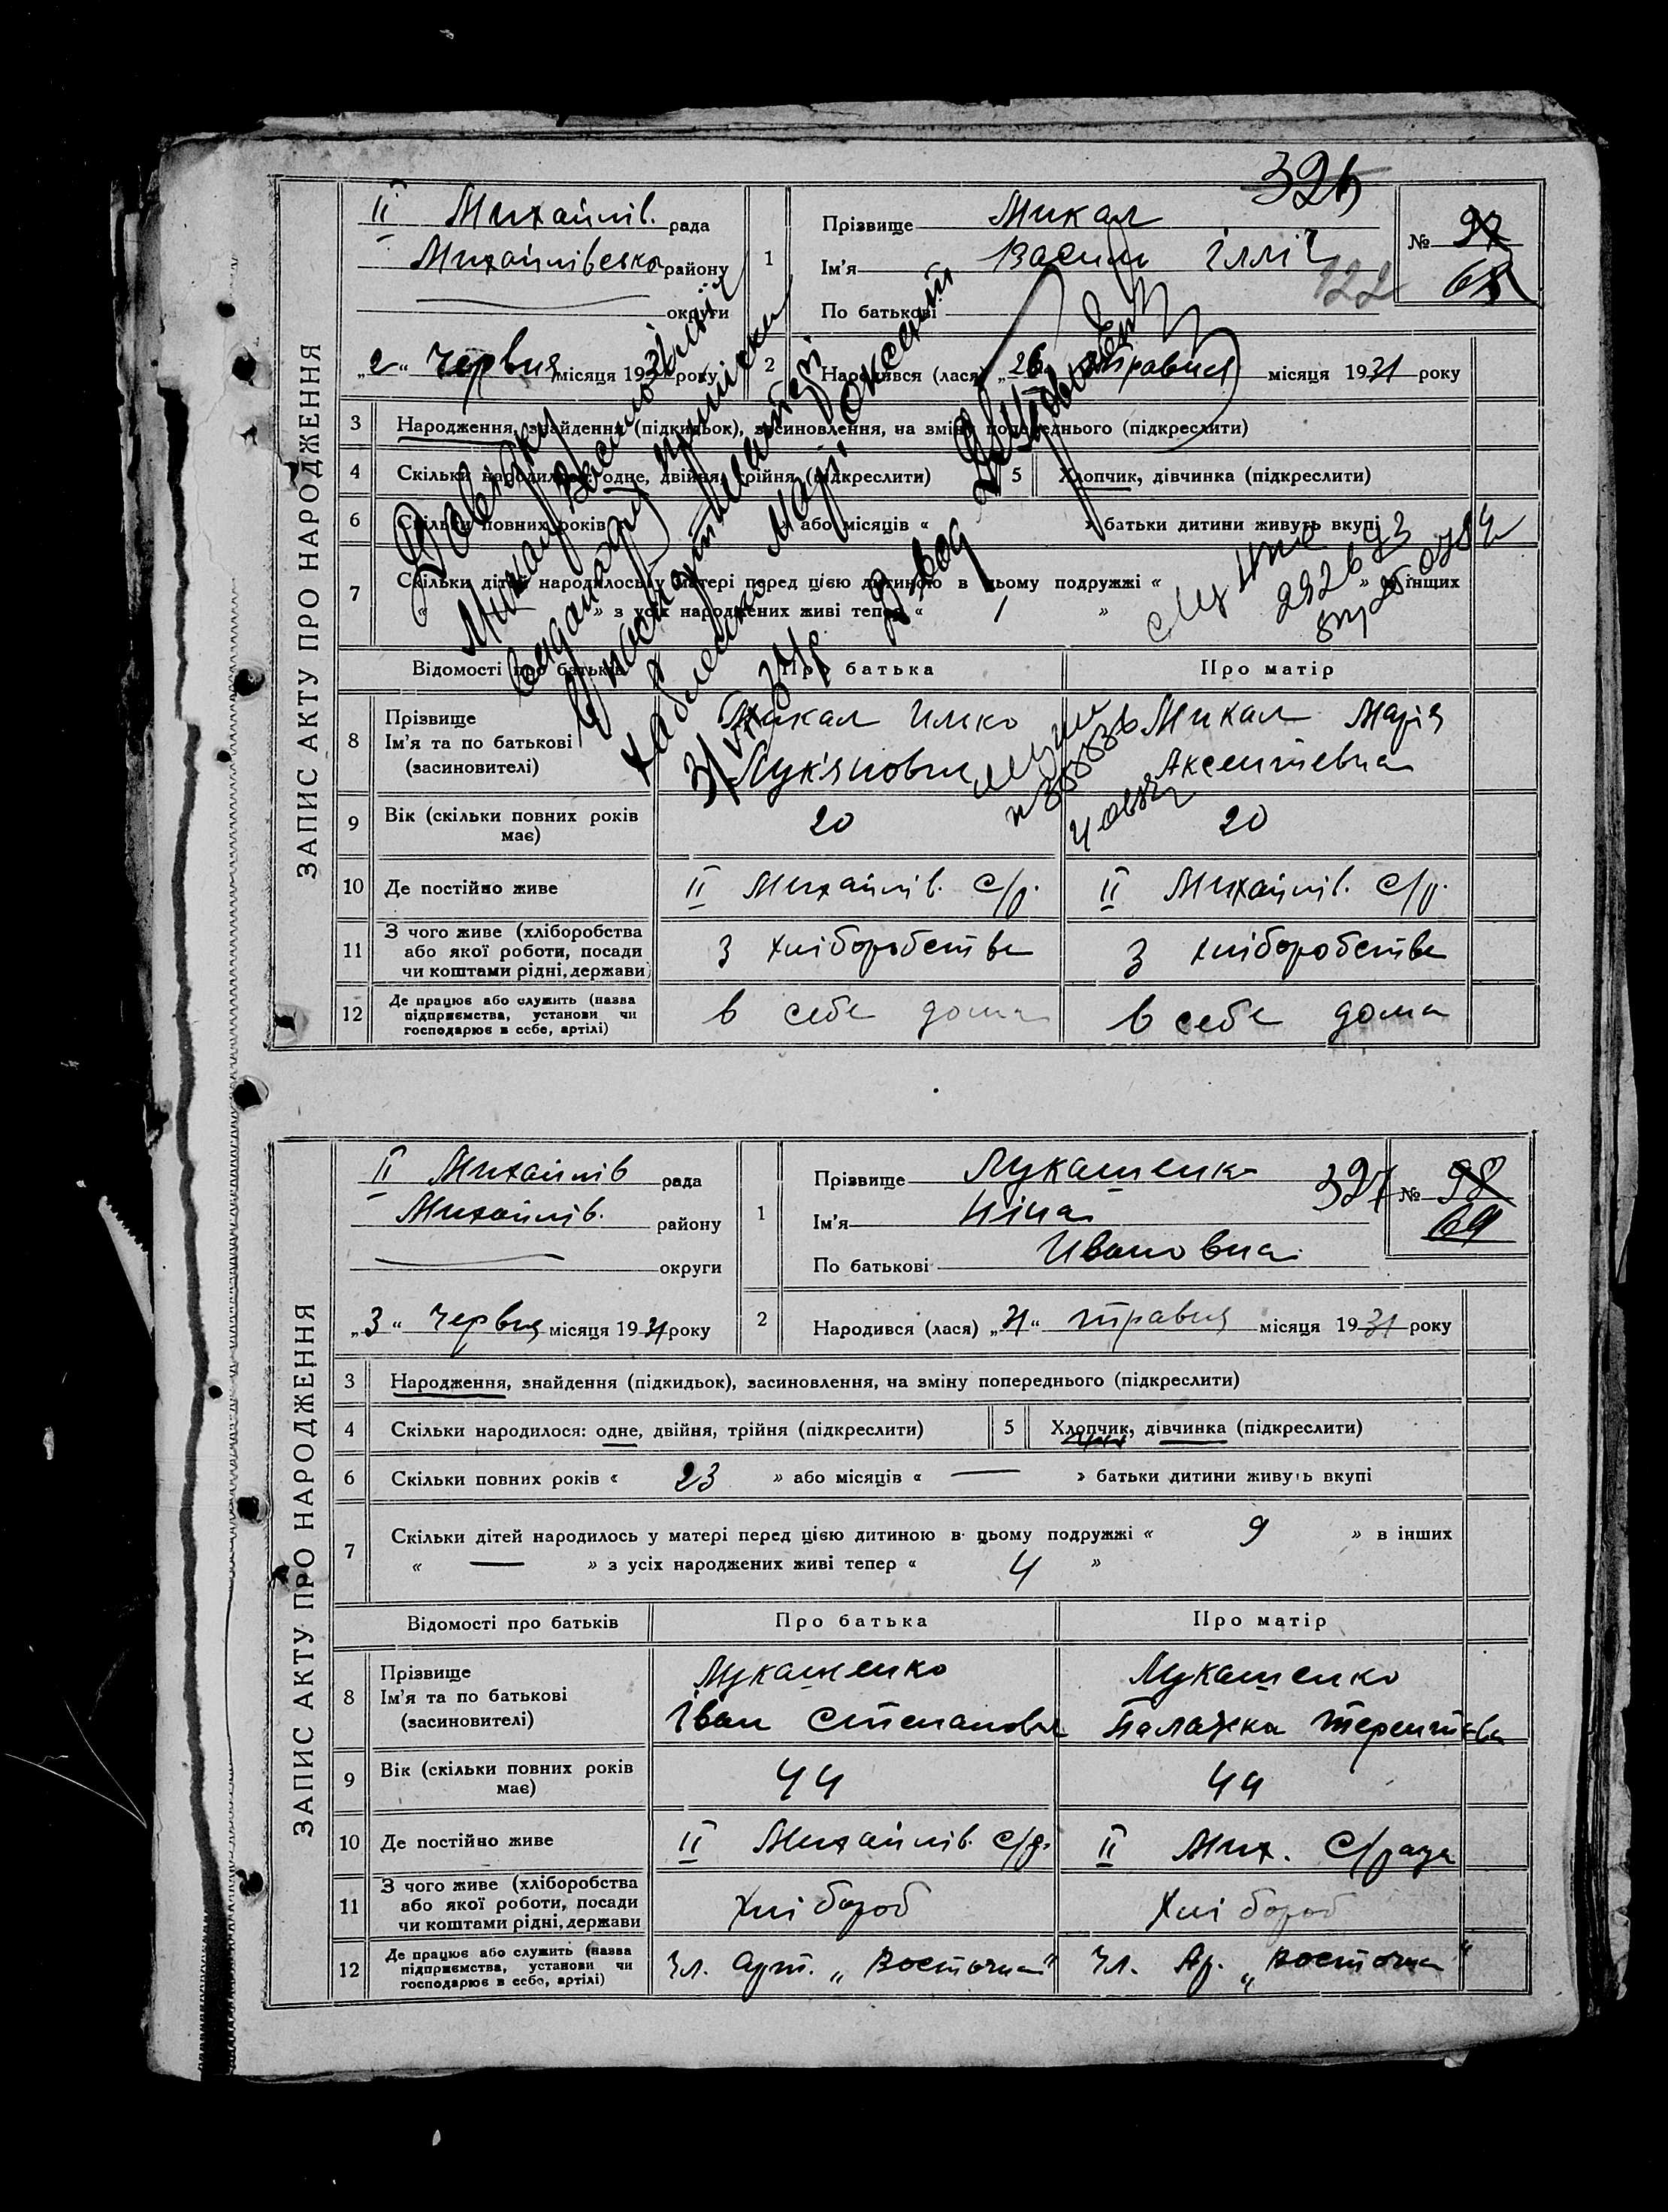 326
ЗАПИС АКТУ ПРО НАРОДЖЕННЯ
II Михайлів. рада
Михайлівсько району
округи
„2“ Червня місяця 1931 року
1 Прізвище Микал
Ім'я Василь Ілліч
По батькові
№ 97
68
122
2 Народився (лася) „26“ травня місяця 1931 року
3 Народження, знайдення (підкидьок), засиновлення, на зміну попереднього (підкреслити)
4 Скільки народилося: одне, двійня, трійня (підкреслити) 5 Хлопчик, дівчинка (підкреслити)
6 Скільки повних років « » або місяців « » батьки дитини живуть вкупі
7 Скільки дітей народилось у матері перед цією дитиною в цьому подружжі « » в інших
« » з усіх народжених живі тепер « 1 »
Довідку
Микал
Василю
видано
292693
Відомості про батьків Про батька Про матір
8 Прізвище
Ім'я та по батькові
(засиновителі)
Микал Илько
Лук'янович
Микал Марія
Аксентіевна
9 Вік (скільки повних років має) 20 20
10 Де постійно живе II Михайлів. с/р. II Михайлів. с/р.
11 З чого живе (хліборобства
або якої роботи, посади
чи коштами рідні, держави)
З хліборобства З хліборобства
12 Де працює або служить (назва
підприємства, установи чи
господарює в себе, артілі)
в себе дома в себе дома
ЗАПИС АКТУ ПРО НАРОДЖЕННЯ
II Михайлів рада
Михайлів. району
округи
„3“ Червня місяця 1931 року
1 Прізвище Лукашенко
Ім'я Ніна
По батькові Ивановна
327
№ 98
69
2 Народився (лася) „31“ травня місяця 1931 року
3 Народження, знайдення (підкидьок), засиновлення, на зміну попереднього (підкреслити)
4 Скільки народилося: одне, двійня, трійня (підкреслити) 5 Хлопчик, дівчинка (підкреслити)
6 Скільки повних років « 23 » або місяців « — » батьки дитини живуть вкупі
7 Скільки дітей народилось у матері перед цією дитиною в цьому подружжі « 9 » в інших
« — » з усіх народжених живі тепер « 4 »
Відомості про батьків Про батька Про матір
8 Прізвище
Ім'я та по батькові
(засиновителі)
Лукашенко
Іван Степанович
Лукашенко
Палажка Терентієва
9 Вік (скільки повних років має) 44 44
10 Де постійно живе II Михайлів. с/р. II Мих. с/рада
11 З чого живе (хліборобства
або якої роботи, посади
чи коштами рідні, держави
Хлібороб Хлібороб
12 Де працює або служить (назва
підприємства, установи чи
господарює в себе, артілі)
Чл. арт. „Восточна“ Чл. Ар. „Восточна“